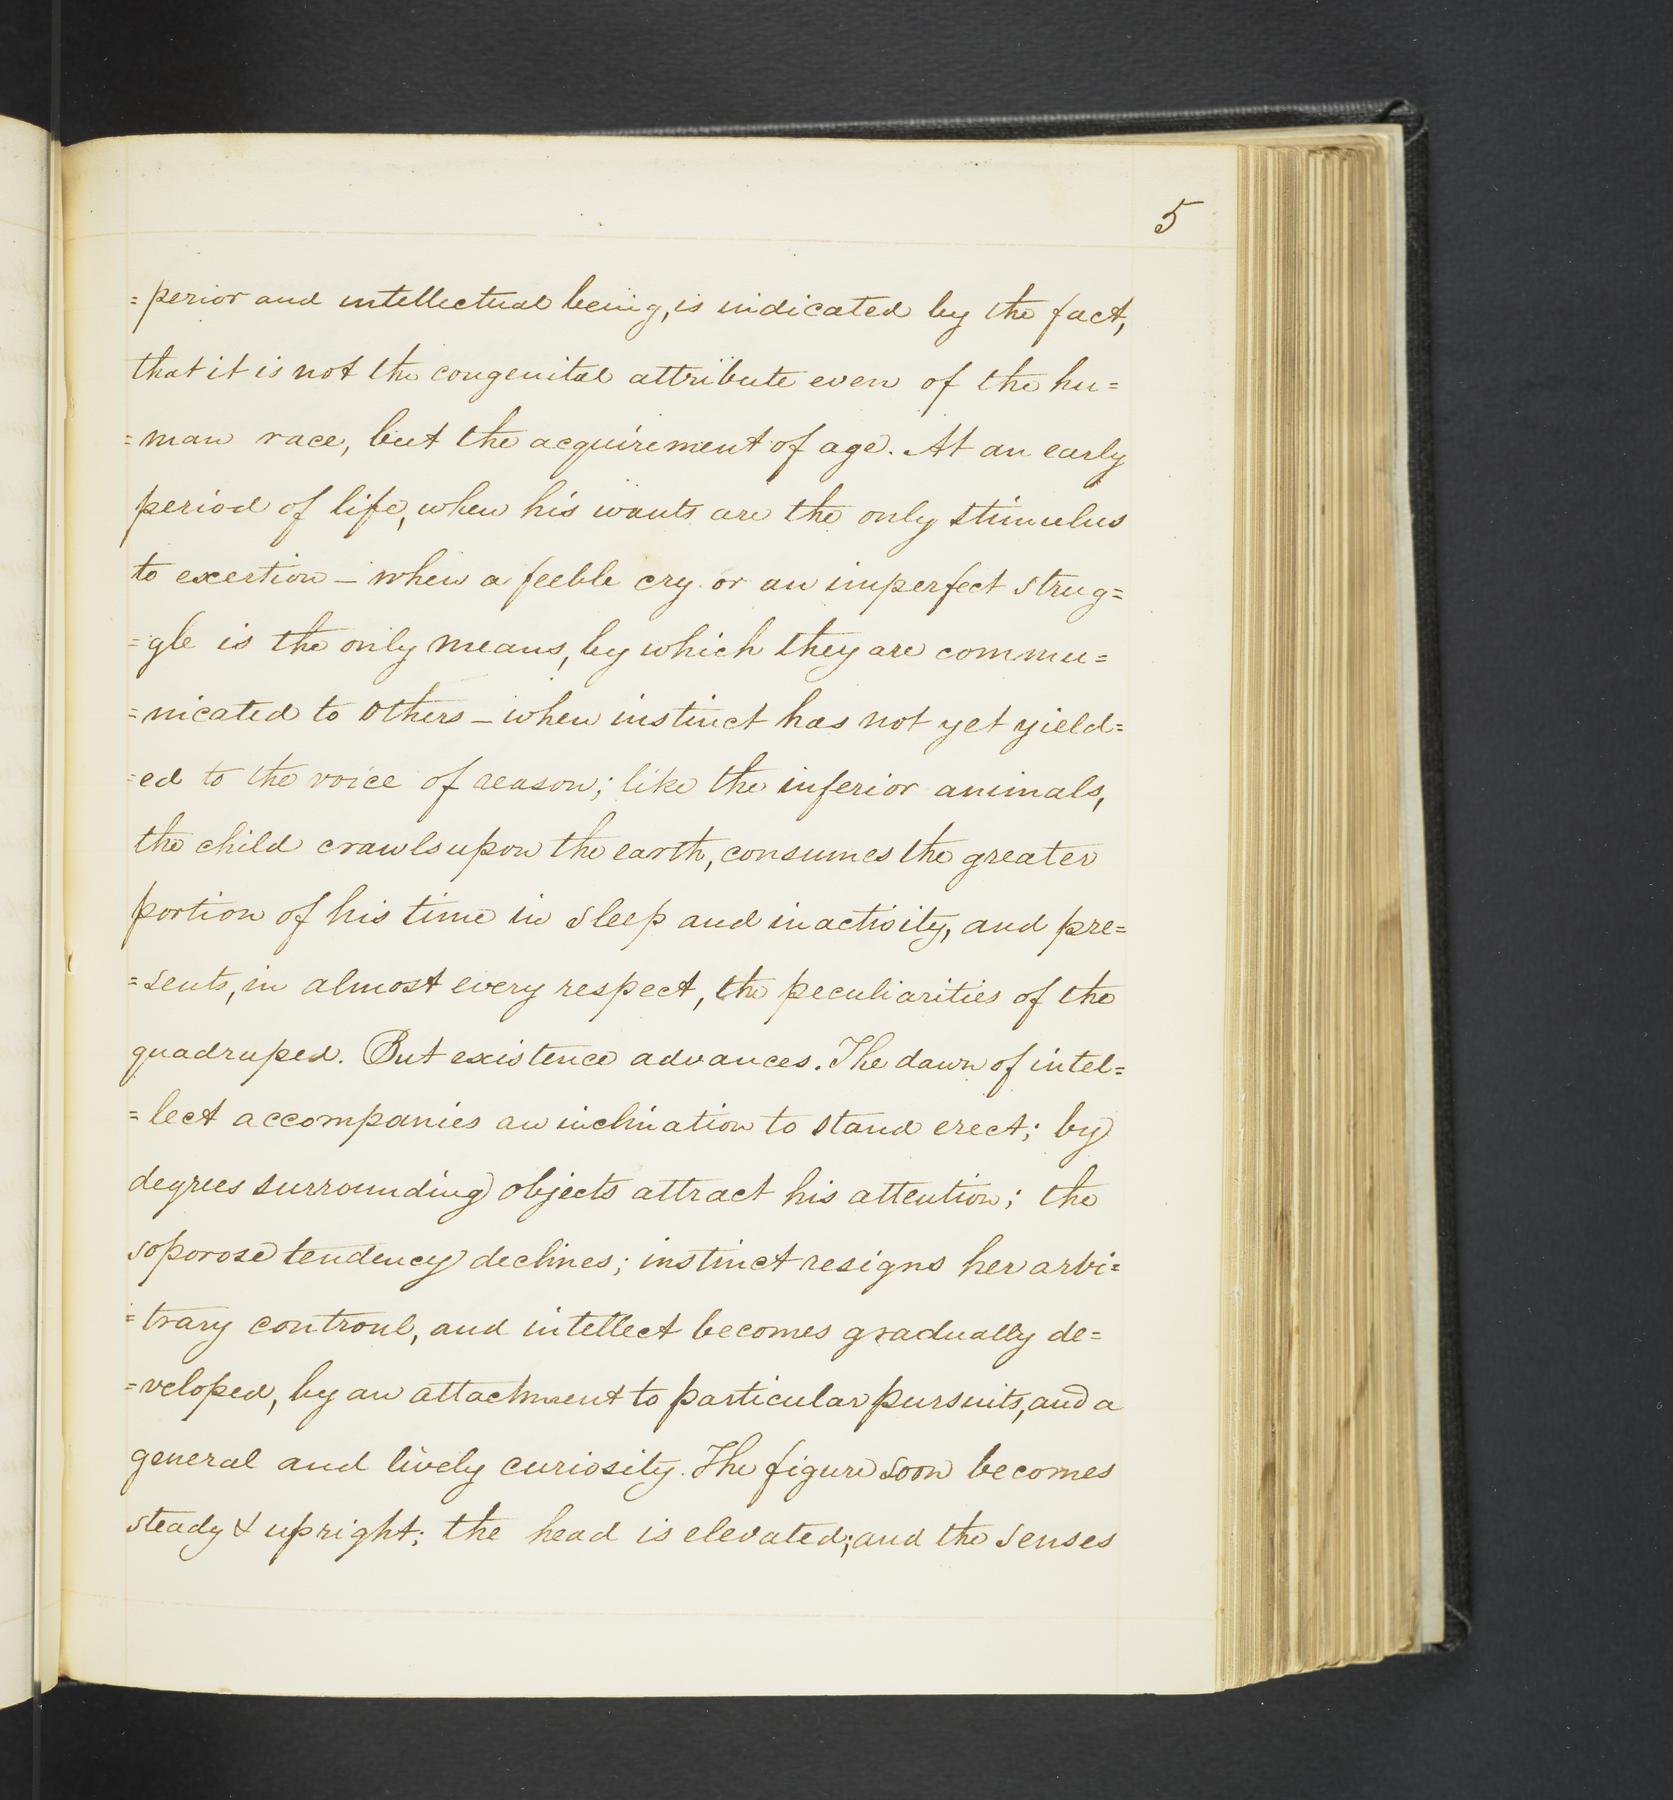 5
=perior and intellectual being, is indicated by the fact,
that it is not the congenital attribute even of the hu=
=man race, but the acquirement of age. At an early
period of life, when his wants are the only stimulus
to exertion – when a feeble cry or an imperfect strug=
=gle is the only means, by which they are commu=
=nicated to others – when instinct has not yet yield=
=ed to the voice of reason; like the inferior animals,
the child crawls upon the earth, consumes the greater
portion of his time in sleep and inactivity, and pre=
=sents, in almost every respect, the peculiarities of the
quadruped. But existence advances. The dawn of intel=
=lect accompanies an inclination to stand erect; by
degrees surrounding objects attract his attention; the
soporose tendency declines; instinct resigns her arbi=
=trary controul, and intellect becomes gradually de=
=veloped, by an attachment to particular pursuits, and a
general and lively curiosity. The figure soon becomes
steady & upright; the head is elevated; and the senses